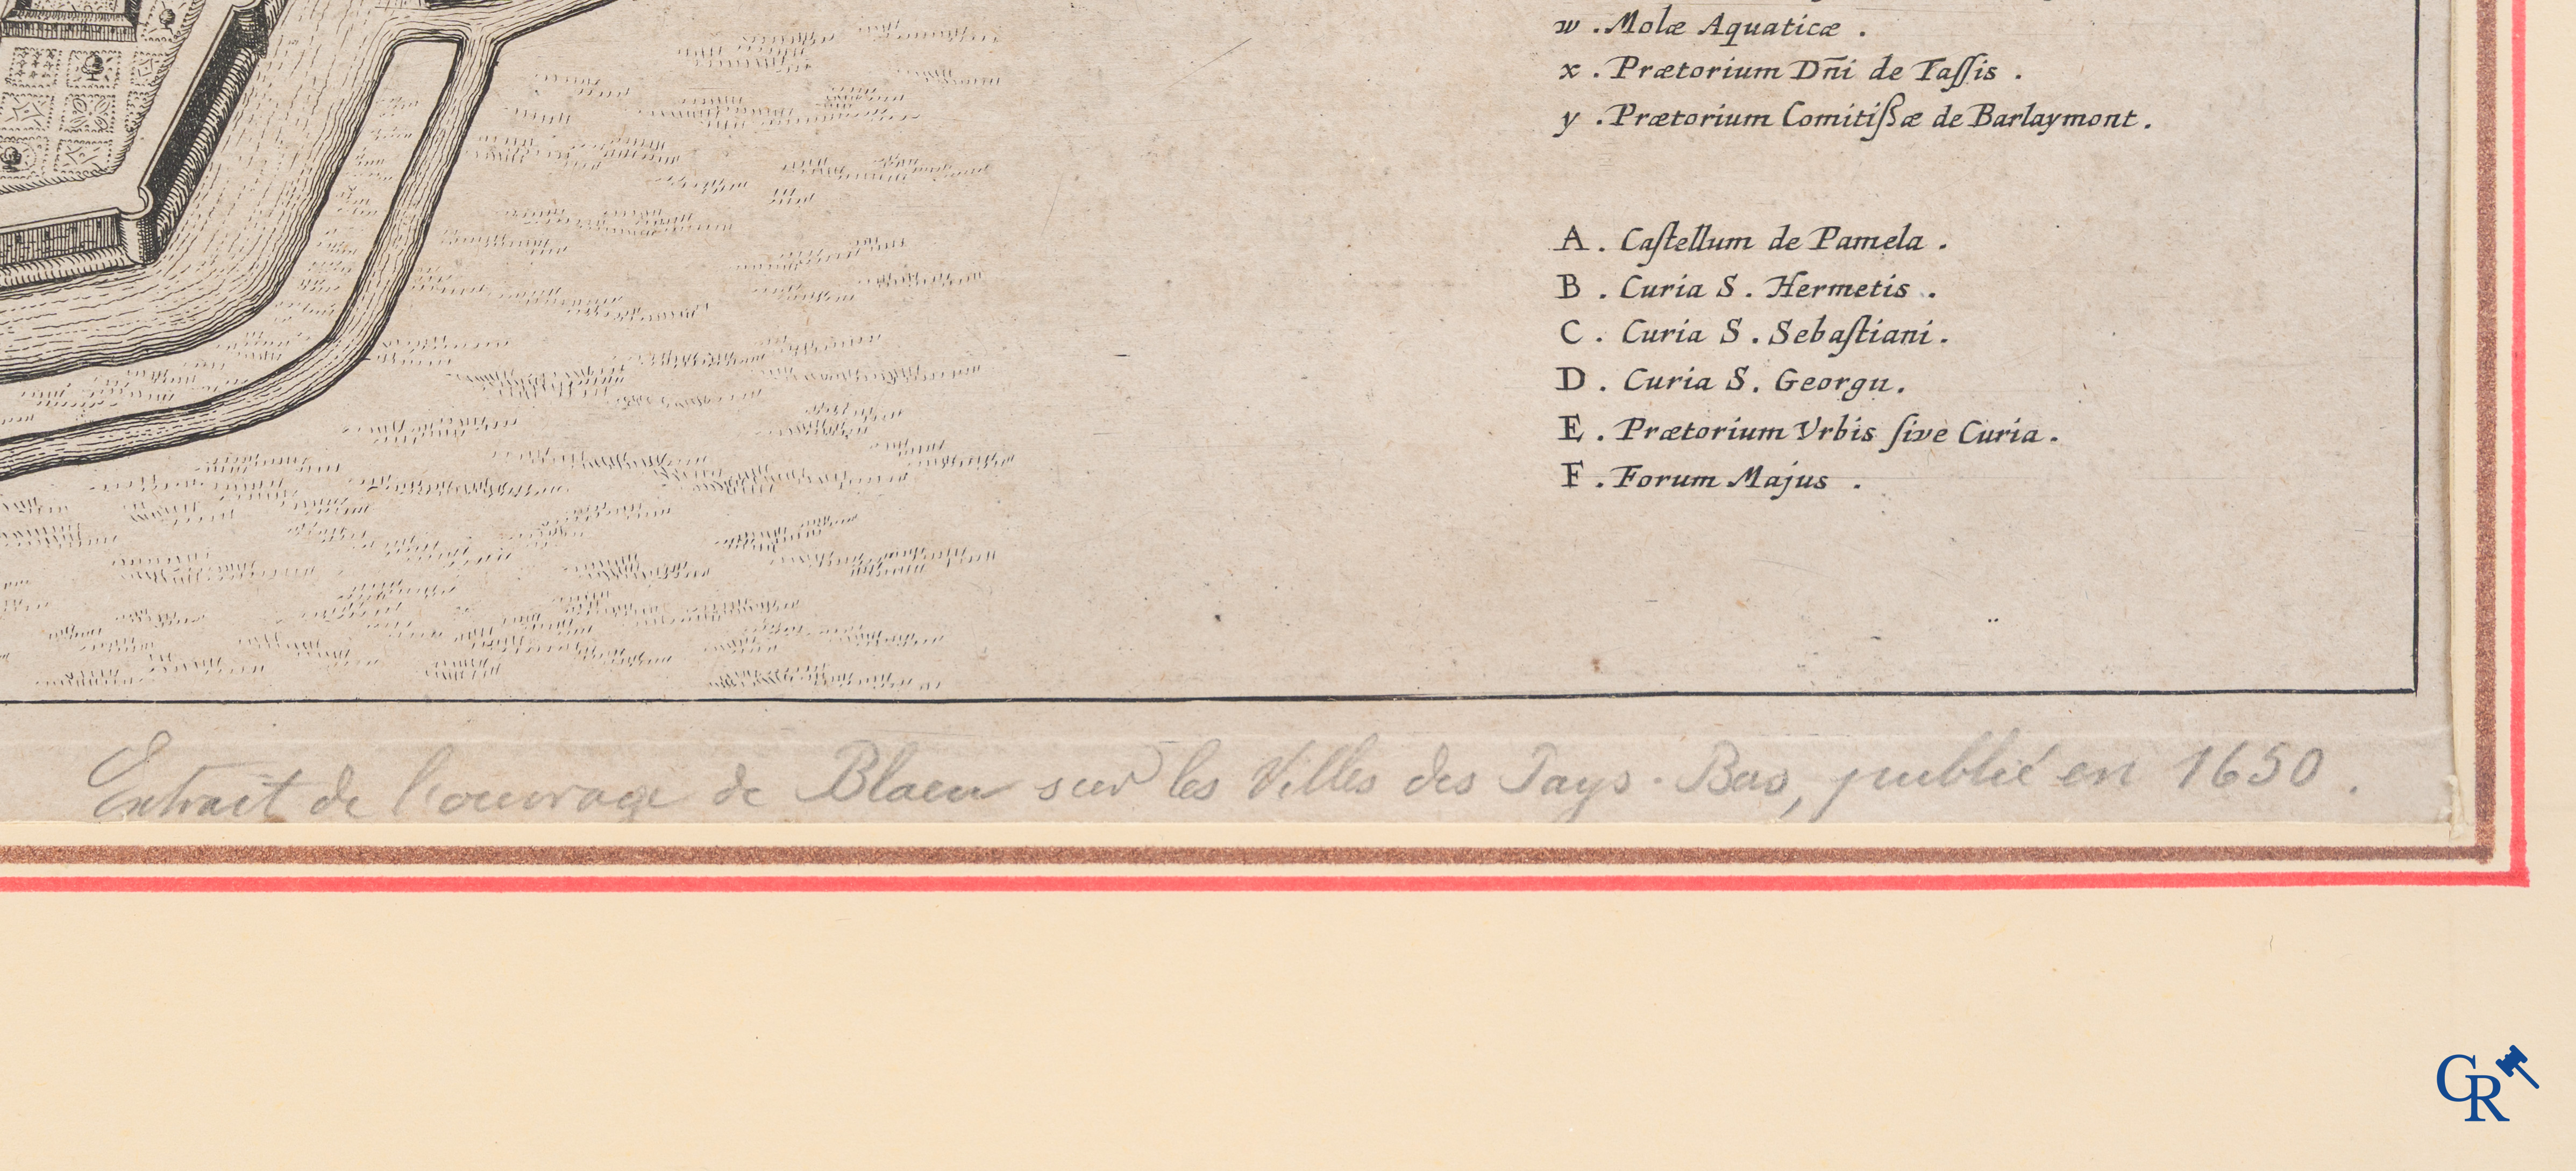 w . Molæ Aquaticæ .
x . Prætorium Dñi de Taſſis .
y . Prætorium Comitiſsæ de Barlaymont .
A . Caſtellum de Pamela .
B . Curia S . Hermetis .
C . Curia S . Sebaſtiani .
D . Curia S . Georgii .
E . Prætorium Vrbis ſive Curia .
F . Forum Majus .
Extrait de l'ouvrage de Blaeu sur les Villes des Pays-Bas, publié en 1650 .
CR